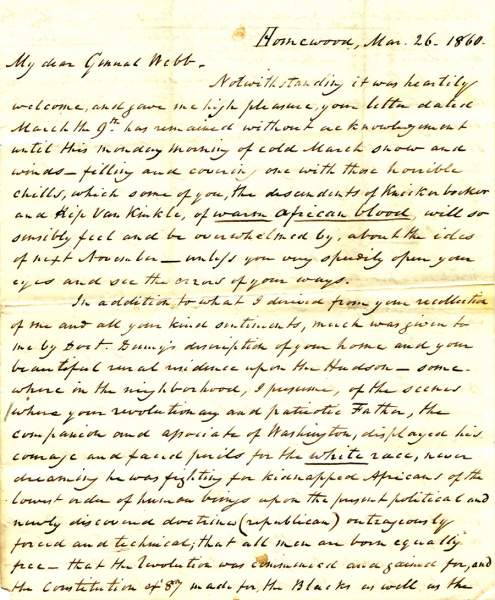 Homewood, Mar. 26. 1860.
My dear General Webb.
Notwithstanding it was heartily
welcome, and gave me high pleasure, your letter dated
March the 9th has remained without acknowledgement
until this monday morning of cold March snow and
winds – filling and covering one with those horrible
chills, which some of you, the descendents of Knickerbocker
and Hip Van Kinkle, of warm African blood, will so
sensibly feel and be overwhelmed by, about the ides
of next November – unless you very speedily open your
eyes and see the errors of your ways.
In addition to what I derived from your recollection
of me and all your kind sentiments, much was given to
me by Doct. description of your home and your
beautiful rural residence upon the Hudson – some-
where in the neighborhood, I presume, of the scenes
where your revolutionary and patriotic Father, the
companion and associate of Washington, displayed his
courage and faced perils for the white race, never
dreaming he was fighting for kidnapped Africans of the
lowest order of human beings upon the present political and
newly discovered doctrines (republican) outrageously
forced and technical; that all men are born equally
free – that the Revolution was commenced and gained for, and
the Constitution of 87 made for, the Blacks as well as the